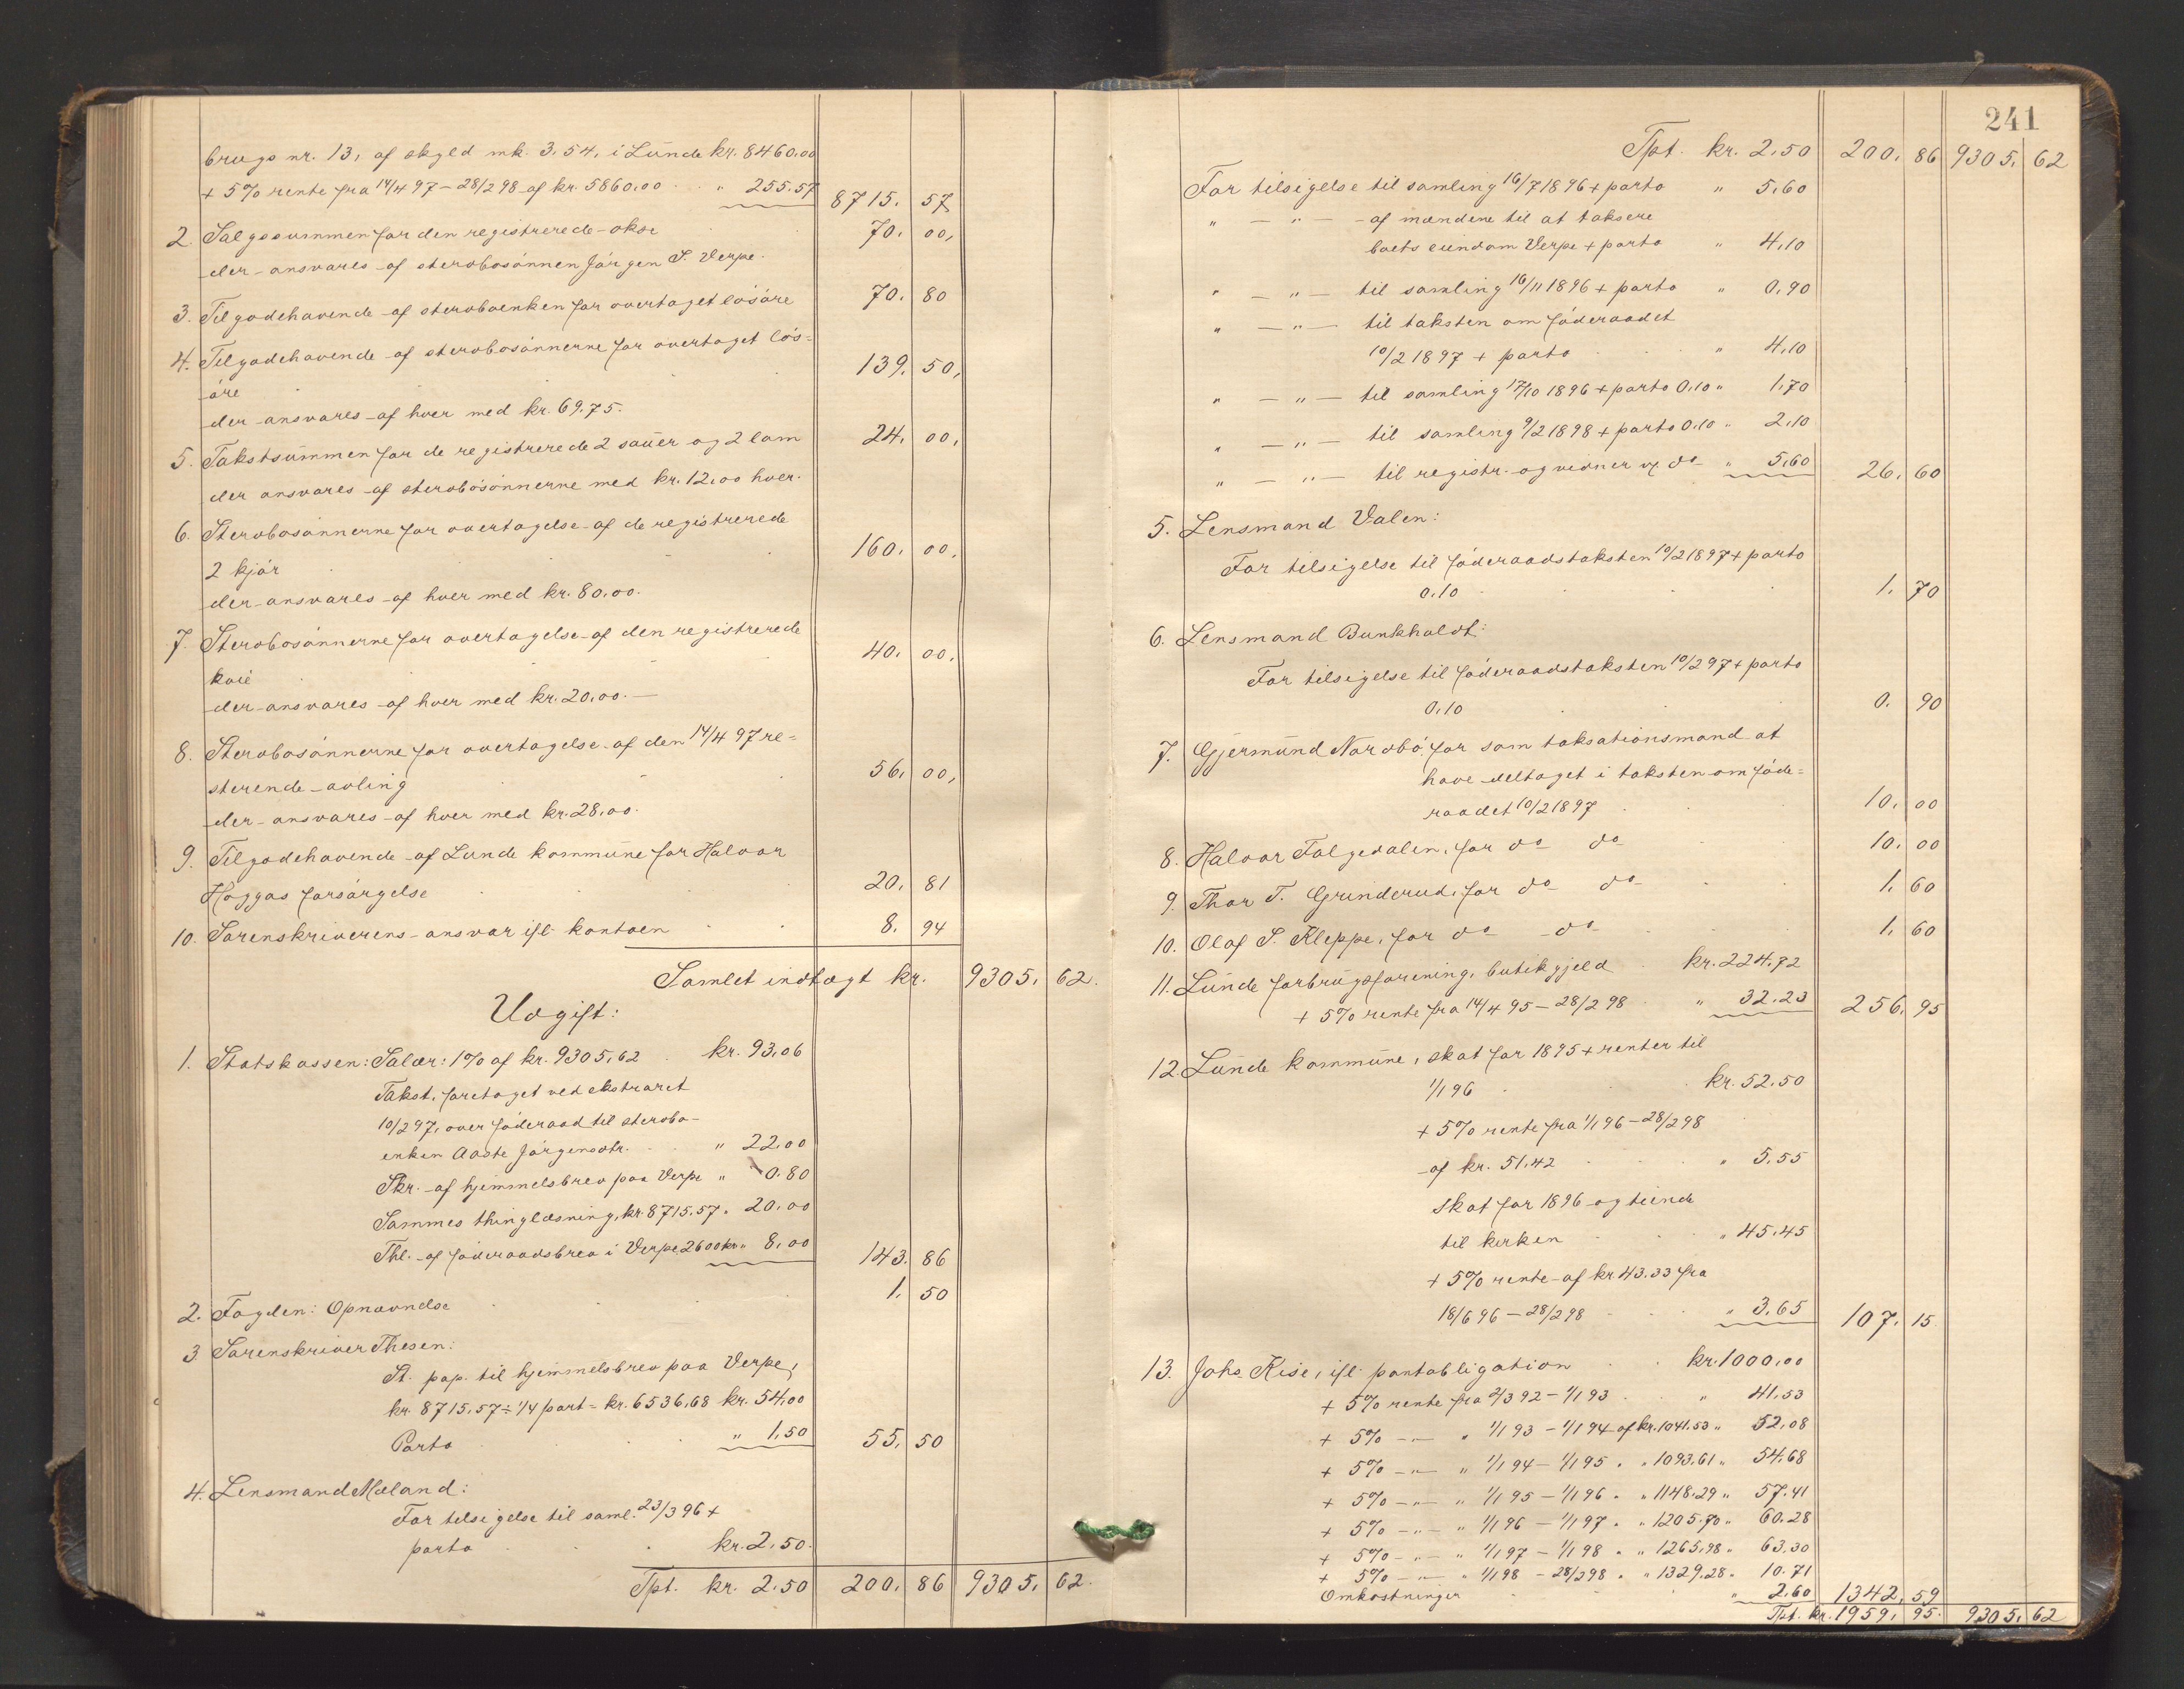 brugs nr. 13, af skyld mk. 3.54, i Lunde kr. 8460,00
+ 5% rente fra 14/4 97 - 28/2 98 af kr. 5860,00 " 255.57 8715. 57
2. Salgssummen for den registrerede okse 70. 00,
der ansvares af sterbosönnen Jörgen S. Verpe.
3. Tilgodehavende af sterboenken for overtaget lösöre 70. 80
4. Tilgodehavende af sterbosönnerne for overtaget lös=
öre 139. 50,
der ansvares af hver med kr. 69.75.
5. Takstsummen for de registrerede 2 sauer og 2 lam 24. 00,
der ansvares af sterbosönnerne med kr. 12,00 hver.
6. Sterbosönnerne for overtagelse af de registrerede
2 kjör 160. 00,
der ansvares af hver med kr. 80,00.
7. Sterbosönnerne for overtagelse af den registrerede
kvie 40. 00,
der ansvares af hver med kr. 20,00. —
8. Sterbosönnerne for overtagelse af den 14/4 97 re=
sterende avling 56, 00,
der ansvares af hver med kr. 28,00.
9. Tilgodehavende af Lunde kommune for Halvor
Haggas forsörgelse 20, 81
10. Sorenskriverens ansvar ifl. kontoen 8. 94
Samlet indtægt kr. 9305, 62.
Udgift:
1. Statskassen: Salær: 1% af kr. 9305,62 kr. 93.06
Takst, foretaget ved ekstraret
10/2 97, over föderaad til sterbo-
enken Aaste Jörgensdtr. " 22,00
Skr. af hjemmelsbrev paa Verpe " 0.80
Sammes thinglæsning, kr. 8715.57 " 20.00
Thl. af föderaadsbrev i Verpe 2600 kr. " 8,00 143. 86
2. Fogden: Opnævnelse 1. 50
3. Sorenskriver Thesen:
St. pap. til hjemmelsbrev paa Verpe,
kr. 8715,57 ÷ 1/4 part = kr. 6536,68 kr. 54,00
Porto " 1,50 55, 50
4. Lensmand Mæland:
For tilsigelse til saml. 23/3 96 +
porto kr. 2,50.
Tpt. kr. 2.50 200, 86 9305, 62.
241
Tpt. kr. 2,50 200. 86 9305, 62
For tilsigelse til samling 16/7 1896 + porto " 5,60
" — " — af mændene til at taksere
boets eiendom Verpe + porto " 4,10
" — " — til samling 16/11 1896 + porto " 0,90
" — " — til taksten om föderaadet
10/2 1897 + porto " 4,10
" — " — til samling 17/10 1896 + porto 0,10 " 1,70
" — " — til samling 9/2 1898 + porto 0,10 " 2,10
" — " — til registr. og vidner v. do " 5,60 26, 60
5. Lensmand Valen:
For tilsigelse til föderaadstaksten 10/2 1897 + porto
0,10 1, 70
6. Lensmand Bunkholdt:
For tilsigelse til föderaadstaksten 10/2 97 + porto
0,10 0. 90
7. Gjermund Nordbö, for som taksationsmand at
have deltaget i taksten om föde=
raadet 10/2 1897 10, 00
8. Halvor Folgedalen, for do do 10. 00
9. Thor T. Grinderud, for do do 1, 60
10. Olaf S. Kleppe, for do do 1, 60
11. Lunde forbrugsforening, butikgjeld kr. 224.72
+ 5% rente fra 14/4 95 - 28/2 98 " 32.23 256, 95
12. Lunde kommune, skat for 1895 + renter til
1/1 96 kr. 52.50
+ 5% rente fra 1/1 96 - 28/2 98
af kr. 51.42 " 5.55
Skat for 1896 og tiende
til kirken " 45.45
+ 5% rente af kr. 43.33 fra
18/6 96 - 28/2 98 " 3.65 107. 15.
13. Johs. Kise, ifl. pantobligation kr. 1000,00
+ 5% rente fra 2/3 92 - 1/1 93 " 41.53
+ 5% — " — " 1/1 93 - 1/1 94 af kr. 1041.53 " 52,08
+ 5% — " — " 1/1 94 - 1/1 95 " " 1093.61 " 54.68
+ 5% — " — " 1/1 95 - 1/1 96 " " 1148.29 " 57.41
+ 5% — " — " 1/1 96 - 1/1 97 " " 1205.70 " 60.28
+ 5% — " — " 1/1 97 - 1/1 98 " " 1265,98 " 63.30
+ 5% — " — " 1/1 98 - 28/2 98 " " 1329.28 " 10.71
Omkostninger " 2,60 1342, 59
Tpt. kr. 1959, 95. 9305, 62